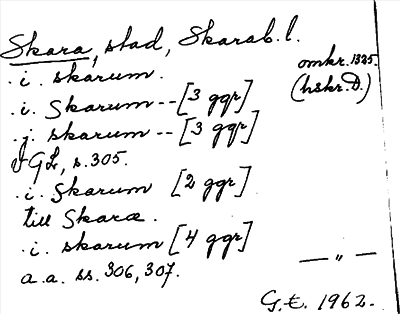 Skara, stad, Skarab. l.
.i. skarum.
omkr. 1325.
(hskr. D.)
.i. Skarum -- [3 ggr]
.j. skarum -- [3 ggr]
VGL, s. 305.
.i. Skarum [2 ggr]
till Skaræ.
.i. skarum [4 ggr]
a. a. ss. 306, 307.
— " —
G. E. 1962.